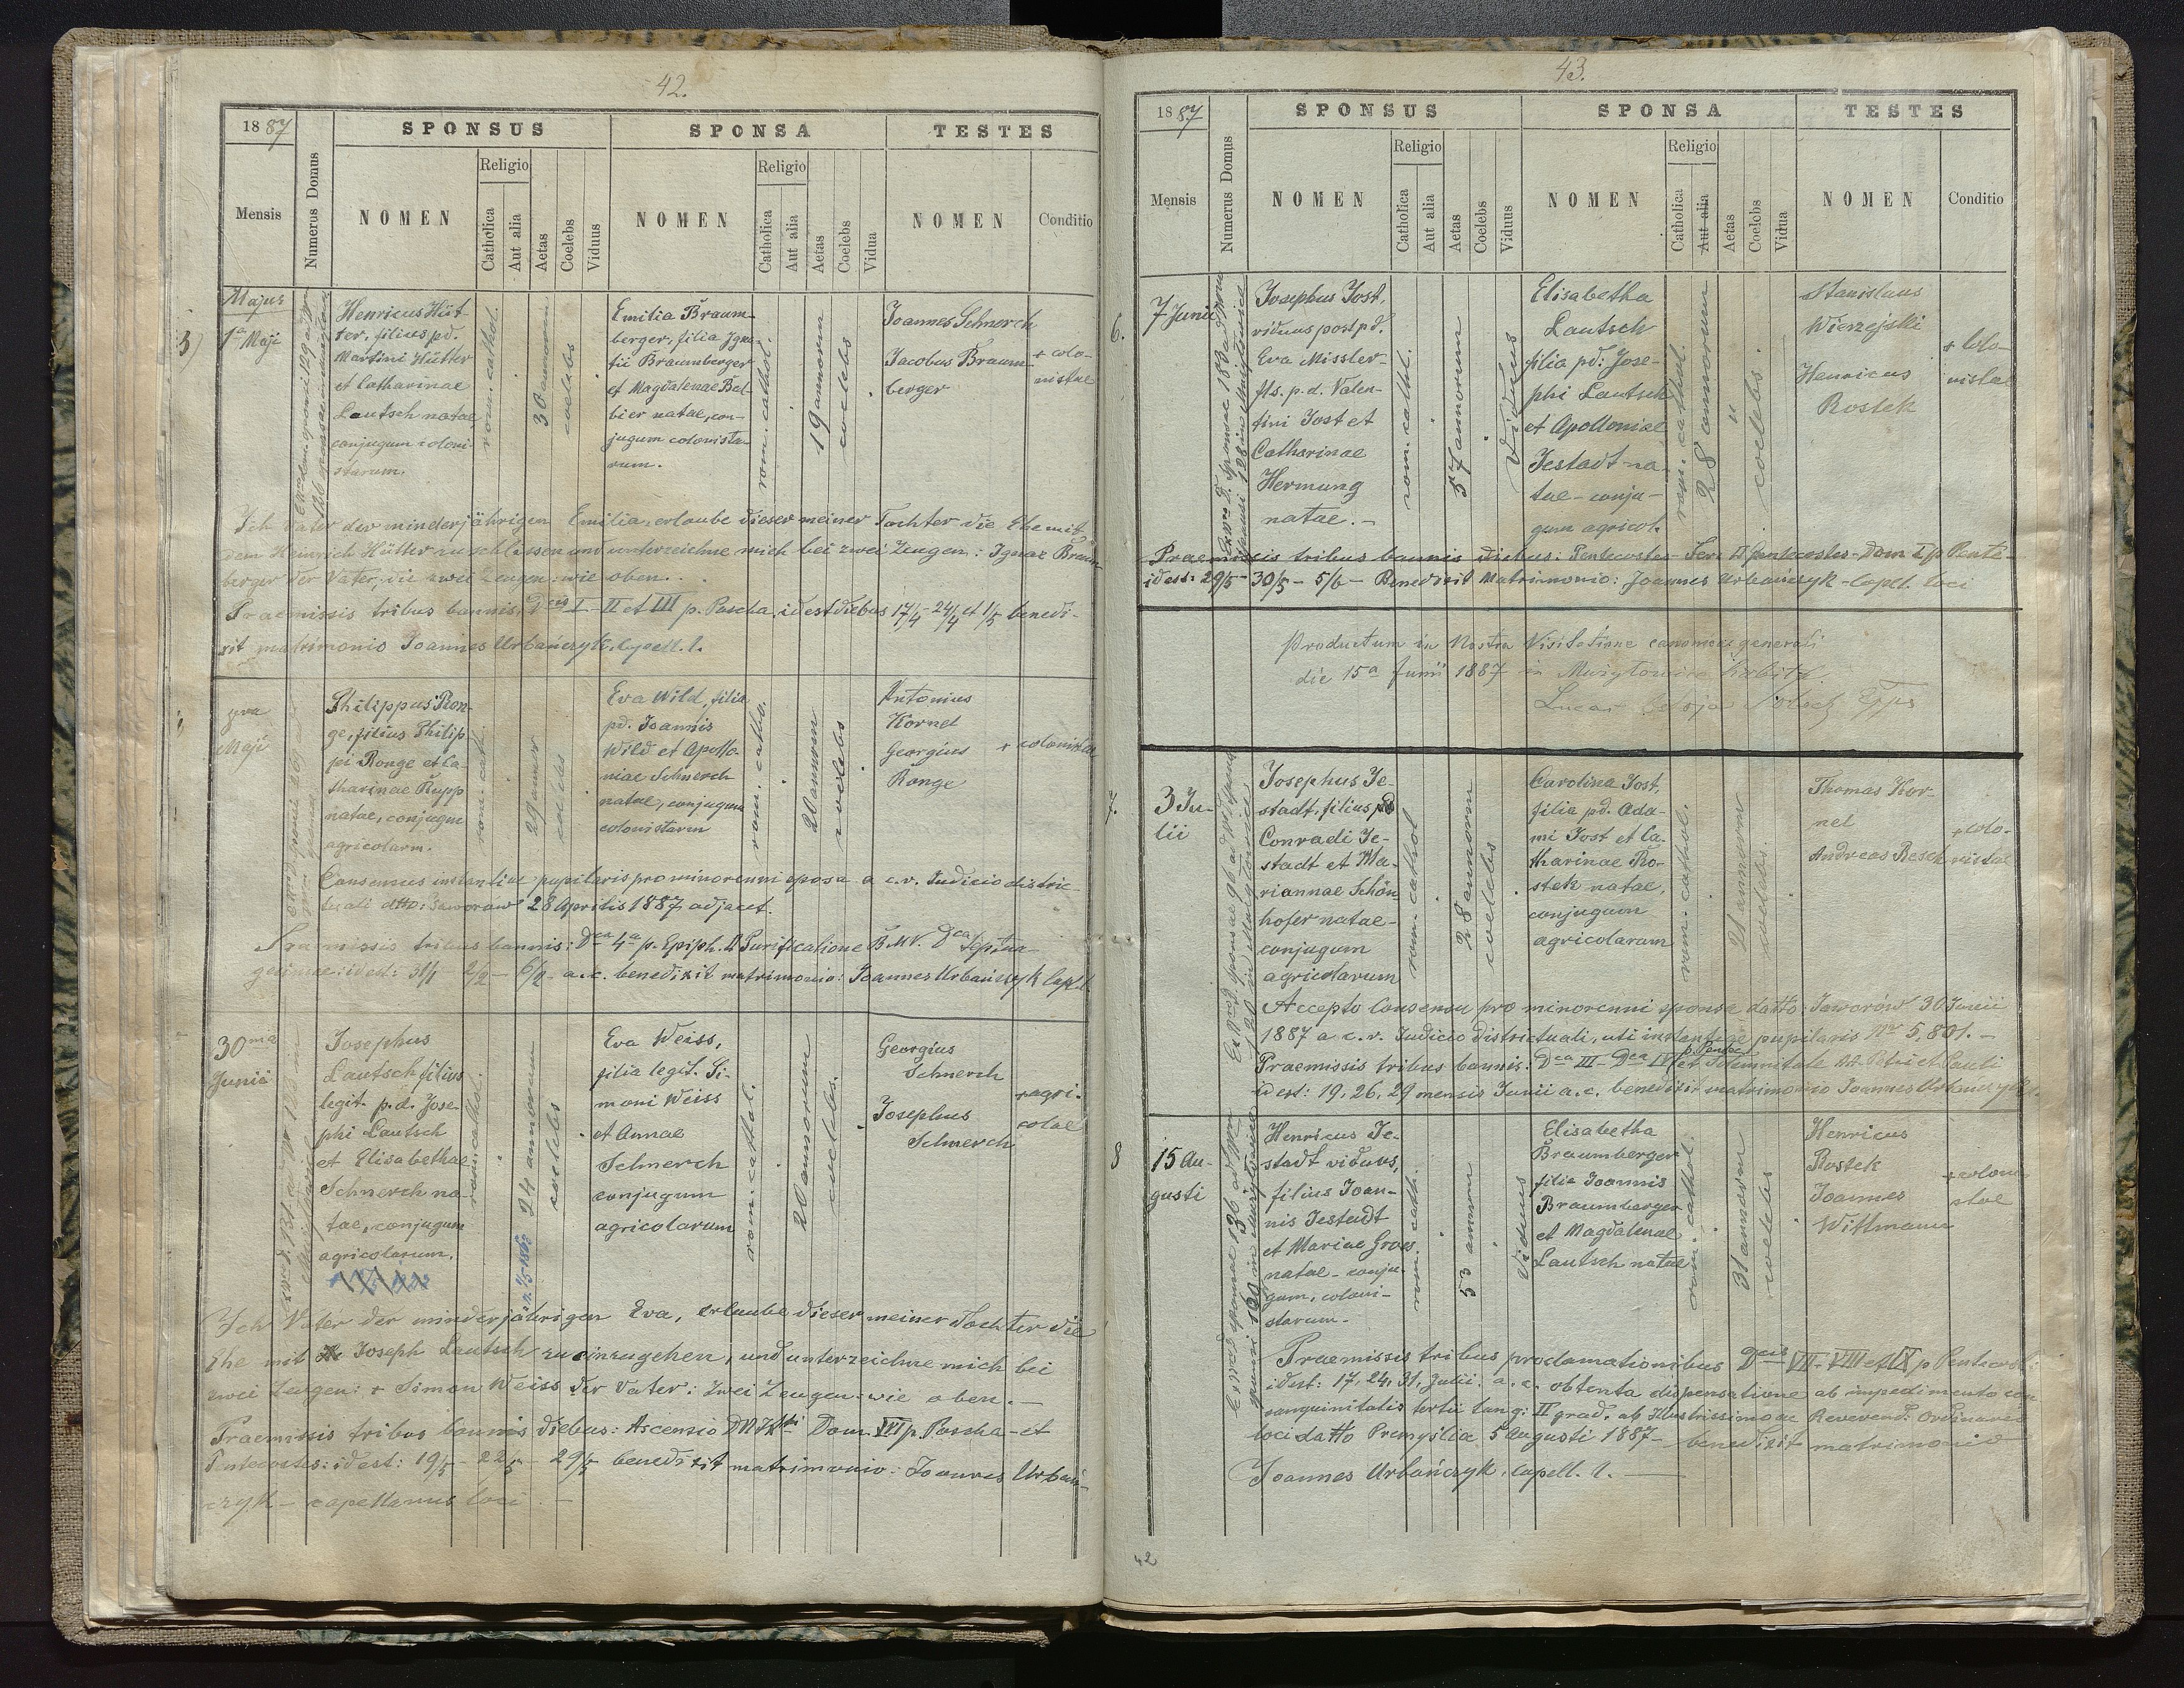 42.
1887
SPONSUS
SPONSA
TESTES
Mensis
Numerus Domus
NOMEN
Religio
Catholica
Aut alia
Aetas
Coelebs
Viduus
NOMEN
Religio
Catholica
Aut alia
Aetas
Coelebs
Vidua
NOMEN
Conditio
Majus
1a Maji
Henricus Hüt-
ter, filius pd.
Martini Hütter
et Catharinae
Lautsch natae
conjugum coloni-
starum.
rom. cathol.
30 annorum
coelebs
Emilia Braum-
berger, filia Igna-
tii Braumberger
et Magdalenae Bal-
bier natae, con-
jugum colonista-
rum.
rom. cathol.
19 annorum
coelebs
Joannes Schnerch
Jacobus Braum-
berger
+ colo-
nistae
Ich Vater der minderjährigen Emilia, erlaube dieser meiner Tochter die Ehe mit
dem Heinrich Hütter zu schliessen und unterzeichne mich bei zwei Zeugen: Ignaz Braum-
berger der Vater, die zwei Zeugen: wie oben.
Praemissis tribus bannis: Dcis I - II et III p. Pascha, id est diebus 17/4 - 24/4 et 1/5 benedi-
xit matrimonio Joannes Urbańczyk, capell. l.
Maji
Philippus Ron-
ge, filius Philip-
pi Ronge et Ca-
tharinae Rupp
natae, conjugum
agricolarum.
rom. cath.
29 annor
coelebs
Eva Wild, filia
pd. Joannis
Wild et Apollo-
niae Schnerch
natae, conjugum
colonistarum
rom. catho.
20 annorum
coelebs
Antonius
Kornel
Georgius
Ronge
+ colonistae
Consensus instantiae pupilaris pro minorenni sposa a c.r. Judicio distric-
tuali dtto: Jaworów 28 Aprilis 1887 adjacet.
Praemissis tribus bannis: Dca 4a p. Epiph. II Purificatione B.M.V. Dca Septua-
gesimae: id est: 31/1 - 2/2 - 6/2 - a.c. benedixit matrimonio: Joannes Urbańczyk Capl. l.
30ma
Junii
Josephus
Lautsch filius
legit. p.d. Jose-
phi Lautsch
et Elisabethae
Schnerch na-
tae, conjugum
agricolarum.
rom. cathol.
24 annorum
coelebs
Eva Weiss,
filia legit. Si-
moni Weiss
et Annae
Schnerch
conjugum
agricolarum
rom. cathol.
20 annorum
coelebs.
Georgius
Schnerch
Josephus
Schnerch
+ agri-
colae
Ich Vater der minderjährigen Eva, erlaube dieser meiner Tochter die
Ehe mit Joseph Lautsch zu einzugehen, und unterzeichne mich bei
zwei Zeugen: + Simon Weiss der Vater: Zwei Zeugen: wie oben.
Praemissis tribus bannis diebus: Ascensio DN Dom. VI p. Pascha - et
Pentecostes: id est: 19/5 - 22/5 - 29/5 benedixit matrimonio: Joannes Urbań-
czyk - capellanus loci
43.
1887
SPONSUS
SPONSA
TESTES
Mensis
Numerus Domus
NOMEN
Religio
Catholica
Aut alia
Aetas
Coelebs
Viduus
NOMEN
Religio
Catholica
Aut alia
Aetas
Coelebs
Vidua
NOMEN
Conditio
6.
7 Junii
Josephus Jost,
viduus post pd.
Eva Missler-
fls. p.d. Valen-
tini Jost et
Catharinae
Hermung
natae.-
rom. cathl.
57 annorum
Viduus
Elisabetha
Lautsch
filia pd: Jose-
phi Lautsch
et Apolloniae
Jestadt na-
tae - conju-
gum agricol.
rom. cathol.
28 annorum
coelebs.
Stanislaus
Wierzejski
Henricus
Rostek
+ colo-
nistae
Praemissis tribus bannis diebus: Pentecostes - Fer: II pentecostes - Dom I p Pente-
id est: 29/5 - 30/5 - 5/6 - Benedixit Matrimonio: Joannes Urbańczyk - Capell. loci
Productum in Nostra Visitatione canonica generali
die 15a Junii 1887 in
7.
3 Ju-
lii
Josephus Je-
stadt, filius pd
Conradi Je-
stadt et Ma-
riannae Schön-
hofer natae-
conjugum
agricolarum
rom. cathol
28 annorum
coelebs
Carolina Jost,
filia pd. Ada-
mi Jost et Ca-
tharinae Ro-
stek natae,
conjugum
agricolarum
rom. cathol.
21 annorum
coelebs.
Thomas Kor-
nel
Andreas Resch
+ colo-
nistae
Accepto Consensu pro minorenni sponsa datto: Jaworów 30 Junii
1887 a c.r. Judicio districtuali, uti instantiae pupilaris Nro 5,801.-
Praemissis tribus bannis: Dca III - Dca IV et Solemnitate SS. Petri et Pauli
id est: 19, 26, 29 mensis Junii a.c. benedixit matrimonio Joannes Urbańczyk
8
15 Au-
gusti
Henricus Je-
stadt viduus,
filius Joan-
nis Jestadt
et Mariae Gross
natae - conju-
gum, coloni-
starum-
rom. cath.
53 annorum
Viduus
Elisabetha
Braumberger
filia Joannis
Braumberger
et Magdalenae
Lautsch natae
rom. cathol.
31 annorum
coelebs
Henricus
Rostek
Joannes
Wittmann
+ coloni-
stae
Praemissis tribus proclamationibus Dcis VII - VIII et IX p Pentecost:
id est: 17, 24, 31, Julii. a.c. obtenta dispensatione ab impedimento con-
sanguinitatis tertii tang: II grad. ab Illustrissimo ac Reverend. Ordinario
loci datto Premyslia 5 Augusti 1887 - benedixit matrimonio
Joannes Urbańczyk, capell. l.
42